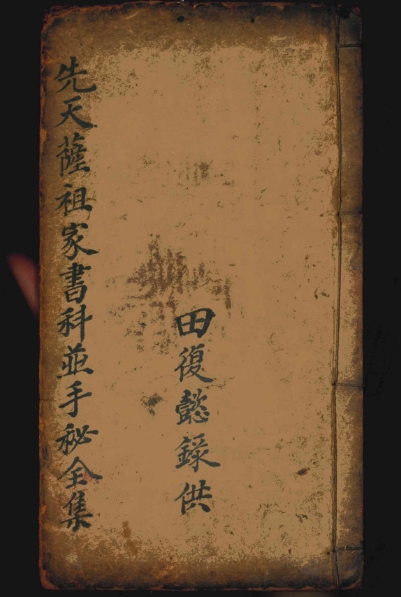 先天薩祖家書科並手秘全集
田復懿錄供